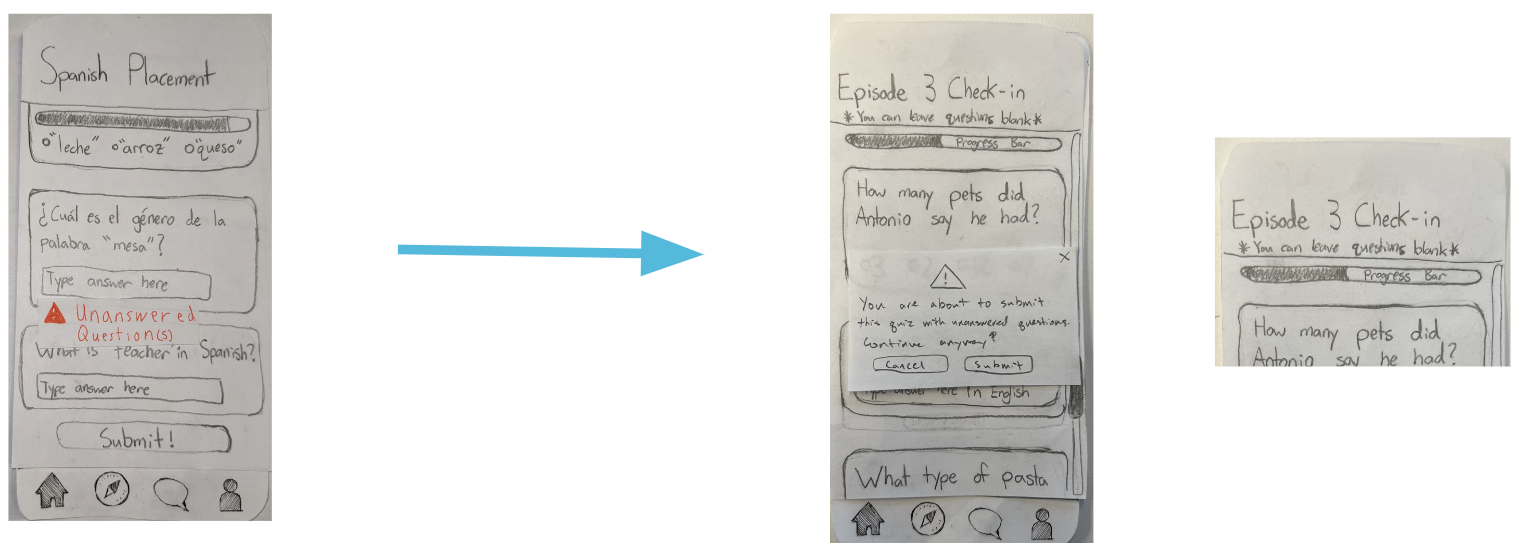 Spanish Placement
o "leche" o "arroz" o "queso"
¿Cuál es el género de la
palabra "mesa"?
Type answer here
Unanswered
Question(s)
What is teacher in Spanish?
Type answer here
Submit!
Episode 3 Check-in
*You can leave questions blank*
Progress Bar
How many pets did
Antonio say he had?
X
!
You are about to submit
this quiz with unanswered questions.
Continue anyway?
Cancel Submit
Type answer here in English
What type of pasta
Episode 3 Check-in
*You can leave questions blank*
Progress Bar
How many pets did
Antonio say he had?